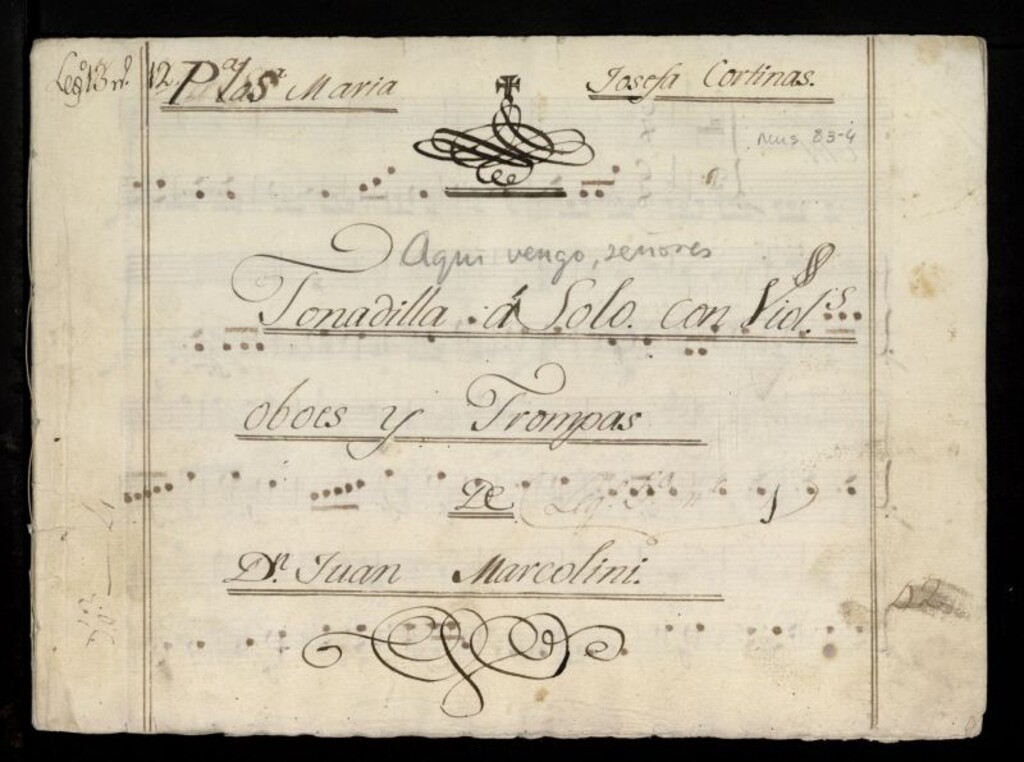 Leg.º 13 n.º 12. P.ª la S.ª Maria Josefa Cortinas.
Mus 83-4
Aqui vengo, señores
Tonadilla á Solo. con Viol.s
oboes y Trompas
De
Dn. Juan Marcolini.